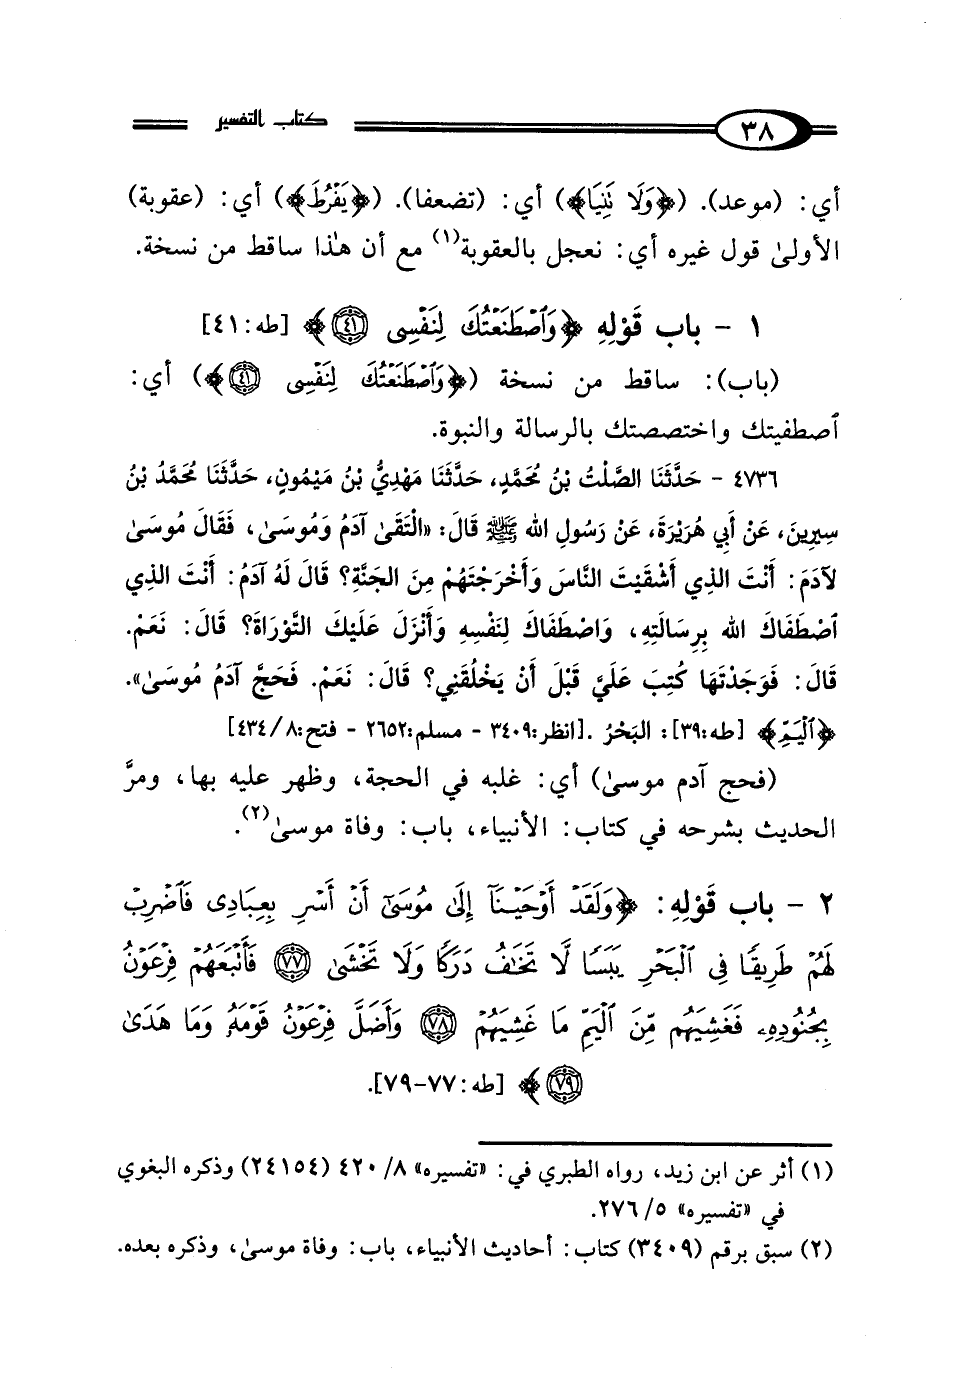 ٣٨ كتاب التفسير
أي: (موعد). (﴿وَلَا نَنِيَا﴾) أي: (تضعفا). (﴿يَفْرُطَ﴾) أي: (عقوبة)
الأولىٰ قول غيره أي: نعجل بالعقوبة(١) مع أن هٰذا ساقط من نسخة.
١ - باب قَوْلِهِ ﴿وَٱصْطَنَعْتُكَ لِنَفْسِى ٤١﴾ [طه:٤١]
(باب): ساقط من نسخة (﴿وَٱصْطَنَعْتُكَ لِنَفْسِى ٤١﴾) أي:
ٱصطفيتك واختصصتك بالرسالة والنبوة.
٤٧٣٦ - حَدَّثَنَا الصَّلْتُ بْنُ مُحَمَّدٍ، حَدَّثَنَا مَهْدِيُّ بْنُ مَيْمُونٍ، حَدَّثَنَا مُحَمَّدُ بْنُ
سِيرِينَ، عَنْ أَبِي هُرَيْرَةَ، عَنْ رَسُولِ اللهِ ﷺ قَالَ: «الْتَقَىٰ آدَمُ وَمُوسَىٰ، فَقَالَ مُوسَىٰ
لآدَمَ: أَنْتَ الذِي أَشْقَيْتَ النَّاسَ وَأَخْرَجْتَهُمْ مِنَ الجَنَّةِ؟ قَالَ لَهُ آدَمُ: أَنْتَ الذِي
ٱصْطَفَاكَ اللهُ بِرِسَالَتِهِ، وَاصْطَفَاكَ لِنَفْسِهِ وَأَنْزَلَ عَلَيْكَ التَّوْرَاةَ؟ قَالَ: نَعَمْ.
قَالَ: فَوَجَدْتَهَا كُتِبَ عَلَيَّ قَبْلَ أَنْ يَخْلُقَنِي؟ قَالَ: نَعَمْ. فَحَجَّ آدَمُ مُوسَىٰ».
﴿ٱلْيَمِّ﴾ [طه:٣٩]: البَحْرُ .[انظر:٣٤٠٩ - مسلم:٢٦٥٢ - فتح:٤٣٤/٨]
(فحج آدم موسىٰ) أي: غلبه في الحجة، وظهر عليه بها، ومرَّ
الحديث بشرحه في كتاب: الأنبياء، باب: وفاة موسىٰ(٢).
٢ - باب قَوْلِهِ: ﴿وَلَقَدْ أَوْحَيْنَآ إِلَىٰ مُوسَىٰٓ أَنْ أَسْرِ بِعِبَادِى فَٱضْرِبْ
لَهُمْ طَرِيقًا فِى ٱلْبَحْرِ يَبَسًا لَّا تَخَٰفُ دَرَكًا وَلَا تَخْشَىٰ ٧٧ فَأَتْبَعَهُمْ فِرْعَوْنُ
بِجُنُودِهِۦ فَغَشِيَهُم مِّنَ ٱلْيَمِّ مَا غَشِيَهُمْ ٧٨ وَأَضَلَّ فِرْعَوْنُ قَوْمَهُۥ وَمَا هَدَىٰ
٧٩﴾ [طه:٧٧-٧٩].
(١) أثر عن ابن زيد، رواه الطبري في: «تفسيره» ٤٢٠/٨ (٢٤١٥٤) وذكره البغوي
في «تفسيره» ٢٧٦/٥.
(٢) سبق برقم (٣٤٠٩) كتاب: أحاديث الأنبياء، باب: وفاة موسىٰ، وذكره بعده.